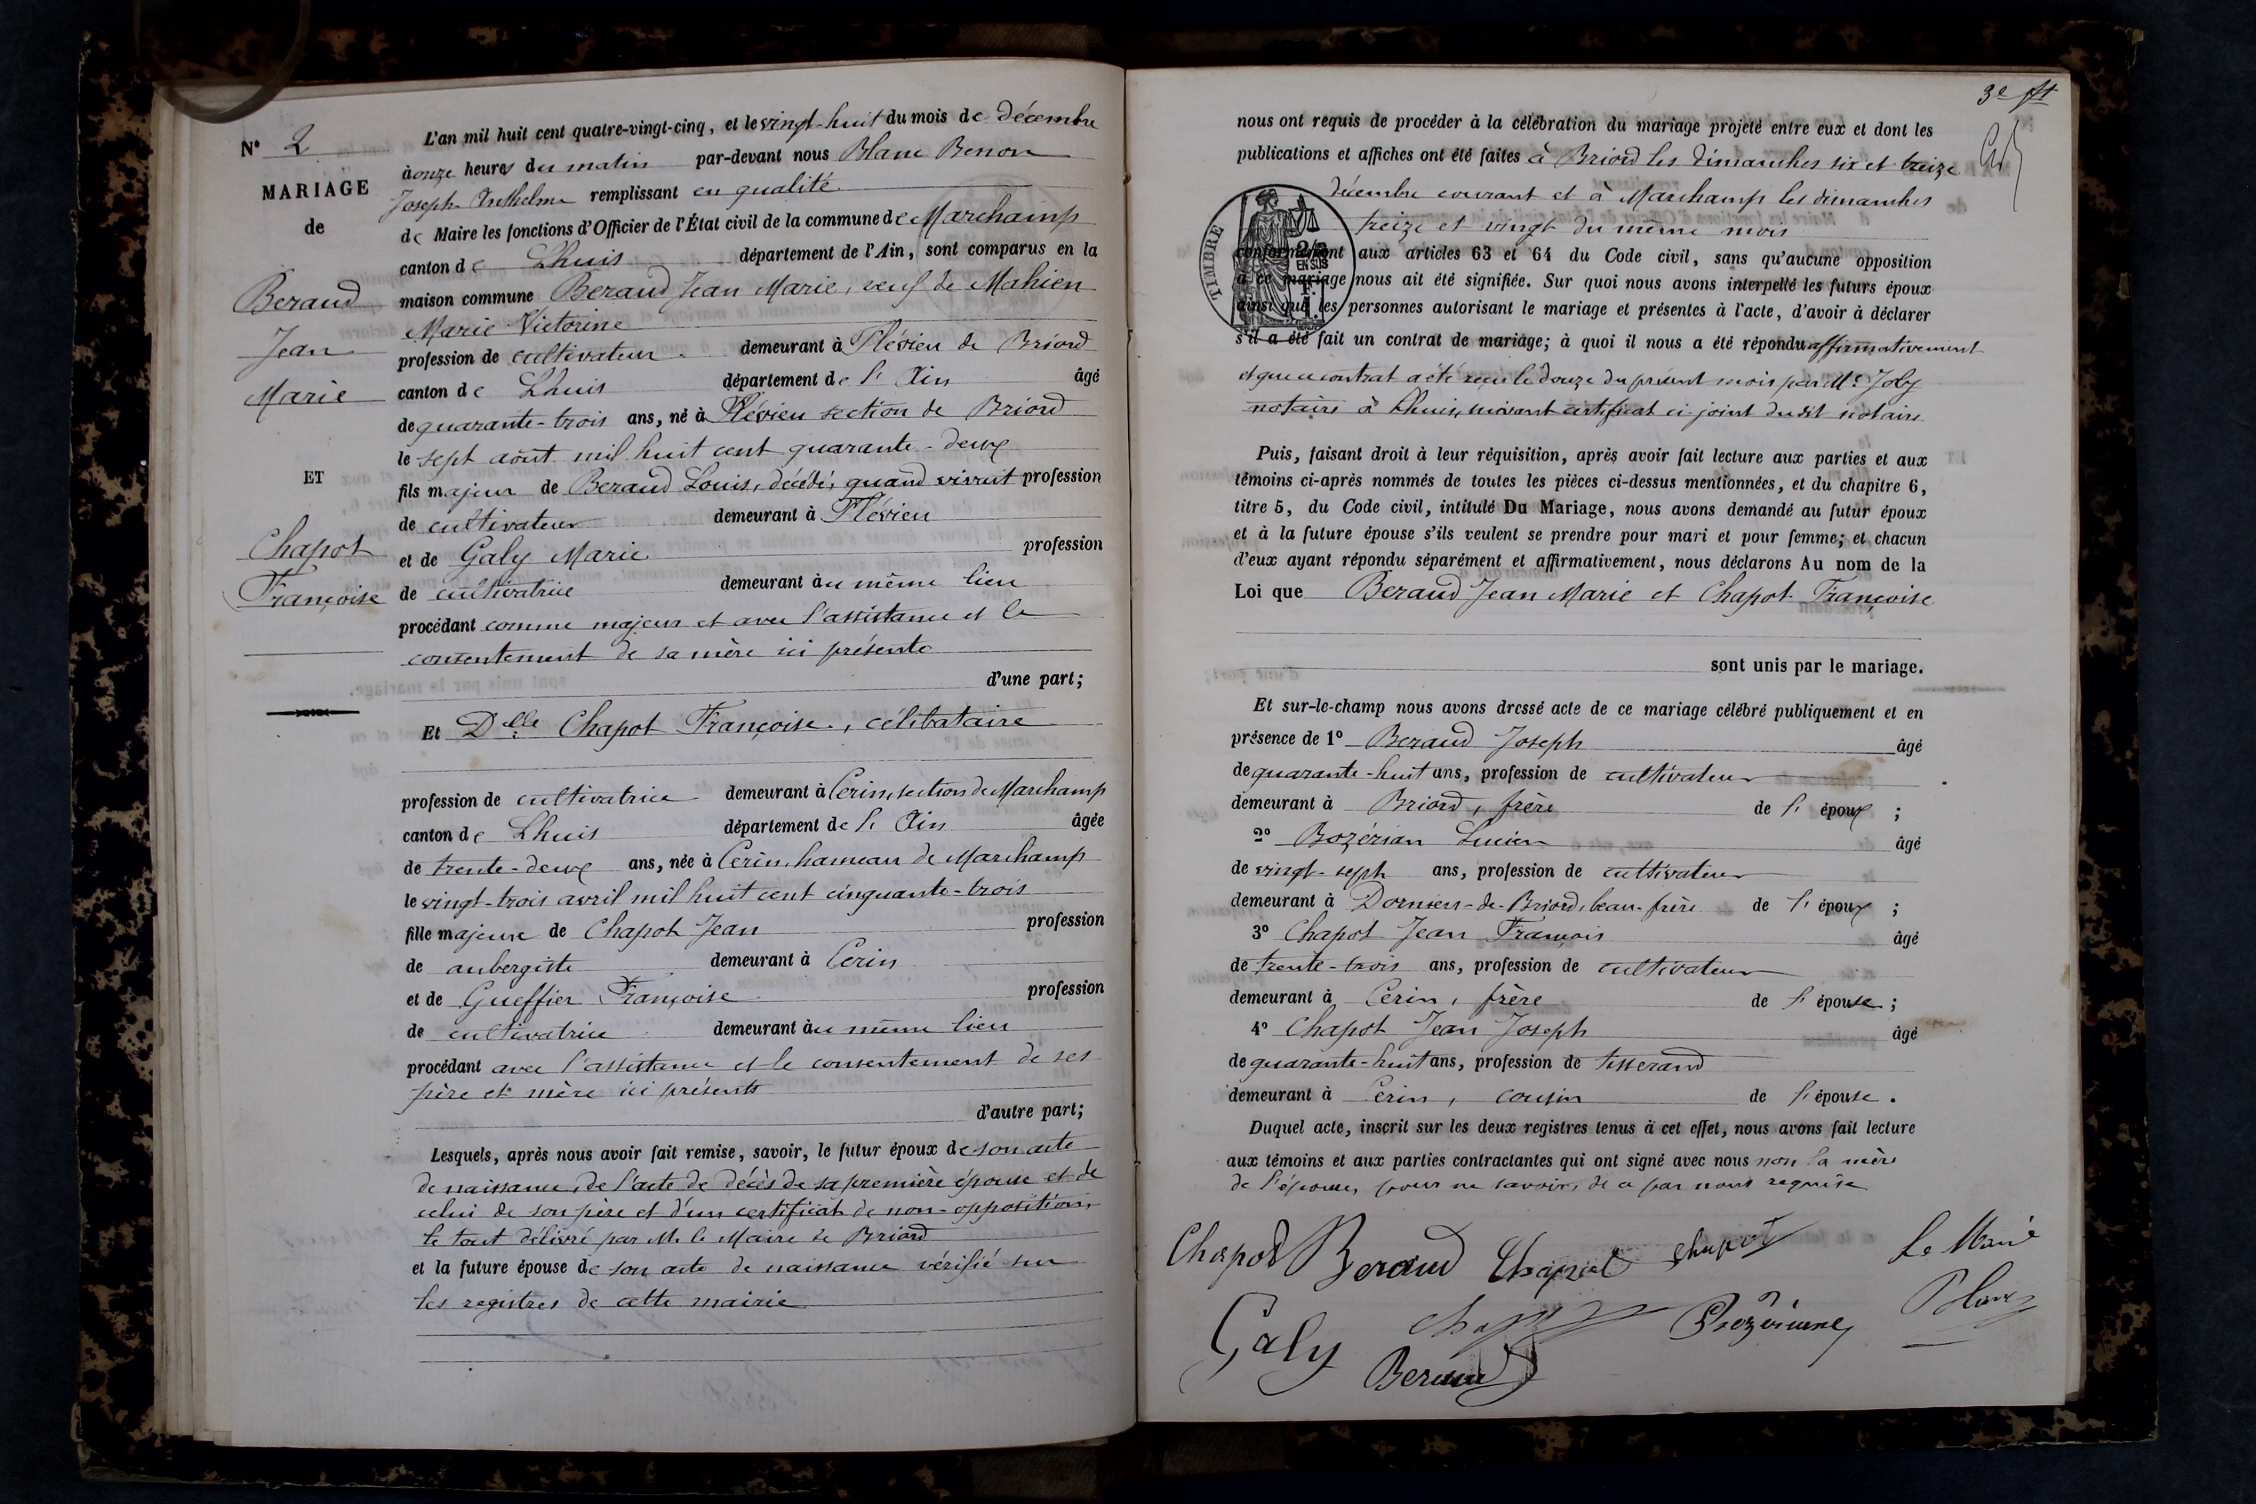 N° 2
MARIAGE
de
Beraud
Jean
Marie
ET
Chapot
Françoise
L'an mil huit cent quatre-vingt-cinq, et le vingt-huit du mois de décembre
à onze heures du matin par-devant nous Blanc Benon
Joseph Anthelme remplissant en qualité
de Maire les fonctions d'Officier de l'État civil de la commune de Marchamp
canton de Lhuis département de l'Ain, sont comparus en la
maison commune Beraud Jean Marie, veuf de Mahien
Marie Victorine
profession de cultivateur demeurant à Flévieu de Briord
canton de Lhuis département de l'Ain âgé
de quarante-trois ans, né à Flévieu section de Briord
le sept août mil huit cent quarante-deux
fils majeur de Beraud Louis, décédé, quand vivait profession
de cultivateur demeurant à Flévieu
et de Galy Marie profession
de cultivatrice demeurant au même lieu
procédant comme majeur et avec l'assistance et le
consentement de sa mère ici présente
d'une part;
Et Delle Chapot Françoise, célibataire
profession de cultivatrice demeurant à Cerin, section de Marchamp
canton de Lhuis département de l'Ain âgée
de trente-deux ans, née à Cerin, hameau de Marchamp
le vingt-trois avril mil huit cent cinquante-trois
fille majeure de Chapot Jean profession
de aubergiste demeurant à Cerin
et de Gueffier Françoise profession
de cultivatrice demeurant au même lieu
procédant avec l'assistance et le consentement de ses
père et mère ici présents
d'autre part;
Lesquels, après nous avoir fait remise, savoir, le futur époux de son acte
de naissance, de l'acte de décès de sa première épouse et de
celui de son père et d'un certificat de non-opposition,
le tout délivré par M. le Maire de Briord
et la future épouse de son acte de naissance vérifié sur
les registres de cette mairie
3e ft
nous ont requis de procéder à la célébration du mariage projeté entre eux et dont les
publications et affiches ont été faites à Briord les dimanches six et treize
décembre courant et à Marchamp les dimanches
treize et vingt du même mois
TIMBRE
2/10
EN SUS
conformément aux articles 63 et 64 du Code civil, sans qu'aucune opposition
à ce mariage nous ait été signifiée. Sur quoi nous avons interpellé les futurs époux
ainsi que les personnes autorisant le mariage et présentes à l'acte, d'avoir à déclarer
s'il a été fait un contrat de mariage; à quoi il nous a été répondu affirmativement
et que ce contrat a été reçu le douze du présent mois par Me Joly
notaire à Lhuis, suivant certificat ci-joint dudit notaire
Puis, faisant droit à leur réquisition, après avoir fait lecture aux parties et aux
témoins ci-après nommés de toutes les pièces ci-dessus mentionnées, et du chapitre 6,
titre 5, du Code civil, intitulé Du Mariage, nous avons demandé au futur époux
et à la future épouse s'ils veulent se prendre pour mari et pour femme; et chacun
d'eux ayant répondu séparément et affirmativement, nous déclarons Au nom de la
Loi que Beraud Jean Marie et Chapot Françoise
sont unis par le mariage.
Et sur-le-champ nous avons dressé acte de ce mariage célébré publiquement et en
présence de 1° Beraud Joseph âgé
de quarante-huit ans, profession de cultivateur
demeurant à Briord, frère de l'époux ;
2° Bozérian Lucien âgé
de vingt-sept ans, profession de cultivateur
demeurant à Dorniers-de-Briord, beau-frère de l'époux ;
3° Chapot Jean François âgé
de trente-trois ans, profession de cultivateur
demeurant à Cerin, frère de l'épouse ;
4° Chapot Jean Joseph âgé
de quarante-huit ans, profession de tisserand
demeurant à Cerin, cousin de l'épouse.
Duquel acte, inscrit sur les deux registres tenus à cet effet, nous avons fait lecture
aux témoins et aux parties contractantes qui ont signé avec nous non la mère
de l'épouse, pour ne savoir, de ce par nous requise
Chapot Beraud Chapot Chapot Le Maire
Galy Chapot Bozérian Blanc
Beraud